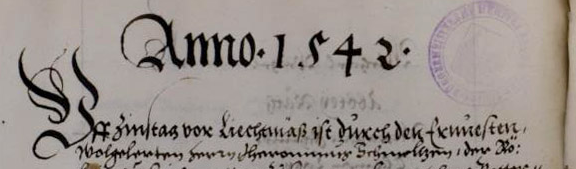 Anno · 1542 ·
Vff Zinstag vor Liechtmäß ist durch den Ernuesten,
wolgelerten herrn Iheronimus Schmeltzen, der Rö: